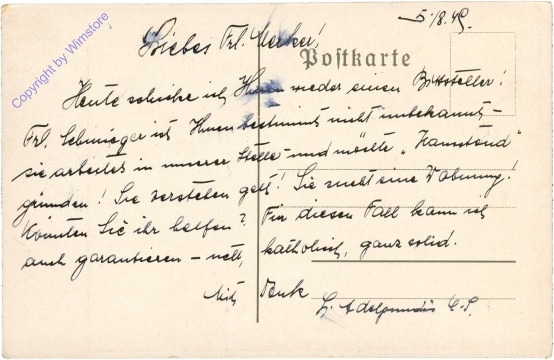 Copyright by Wimstore
5./8.49.
Liebes Frl. Merker!
Postkarte
Heute schicke ich Ihnen wieder einen Bittsteller!
Frl. Schmieger ist Ihnen bestimmt nicht unbekannt -
sie arbeitet in unserer Stelle und möchte „Hausstand"
gründen! Sie verstehen gell! Sie sucht eine Wohnung!
Könnten Sie ihr helfen? Für diesen Fall kann ich
auch garantieren - nett, katholisch, ganz solid.
Mit Dank
Sr. Adelgundis C.S.